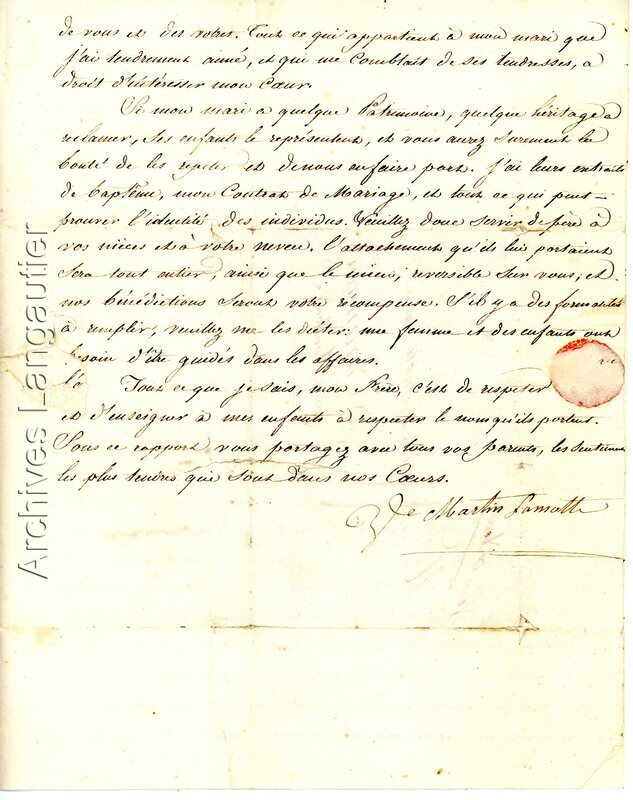 de vous et des votres. Tout ce qui appartient à mon mari que
j'ai tendrement aimé, et qui me comblait de ses tendresses, a
droit d'intéresser mon Cœur.
Si mon mari a quelque Patrimoine, quelque héritage à
reclamer, Ses enfants le représentent, et vous aurez surement la
bonté de les repeter et de nous en faire part. J'ai leurs extraits
de baptême, mon Contrat de Mariage, et tout ce qui peut
prouver l'identité des individus. Veuillez donc servir de père à
vos nièces et à votre neveu. l'attachement qu'ils lui portaient
Sera tout entier, ainsi que le mien, reversible sur vous, et
nos bénédictions seront votre récompense. S'il y a des formalités
à remplir, veuillez me les dicter: une femme et des enfants ont
besoin d'être guidés dans les affaires.
Tout ce que je sais, mon Frère, c'est de respecter
et d'enseigner à mes enfants à respecter le nom qu'ils portent.
Sous ce rapport vous partagez avec tous vos parents, les Sentimens
les plus tendres que sont dans nos Cœurs.
Ve Martin Lamotte
Archives Langautier